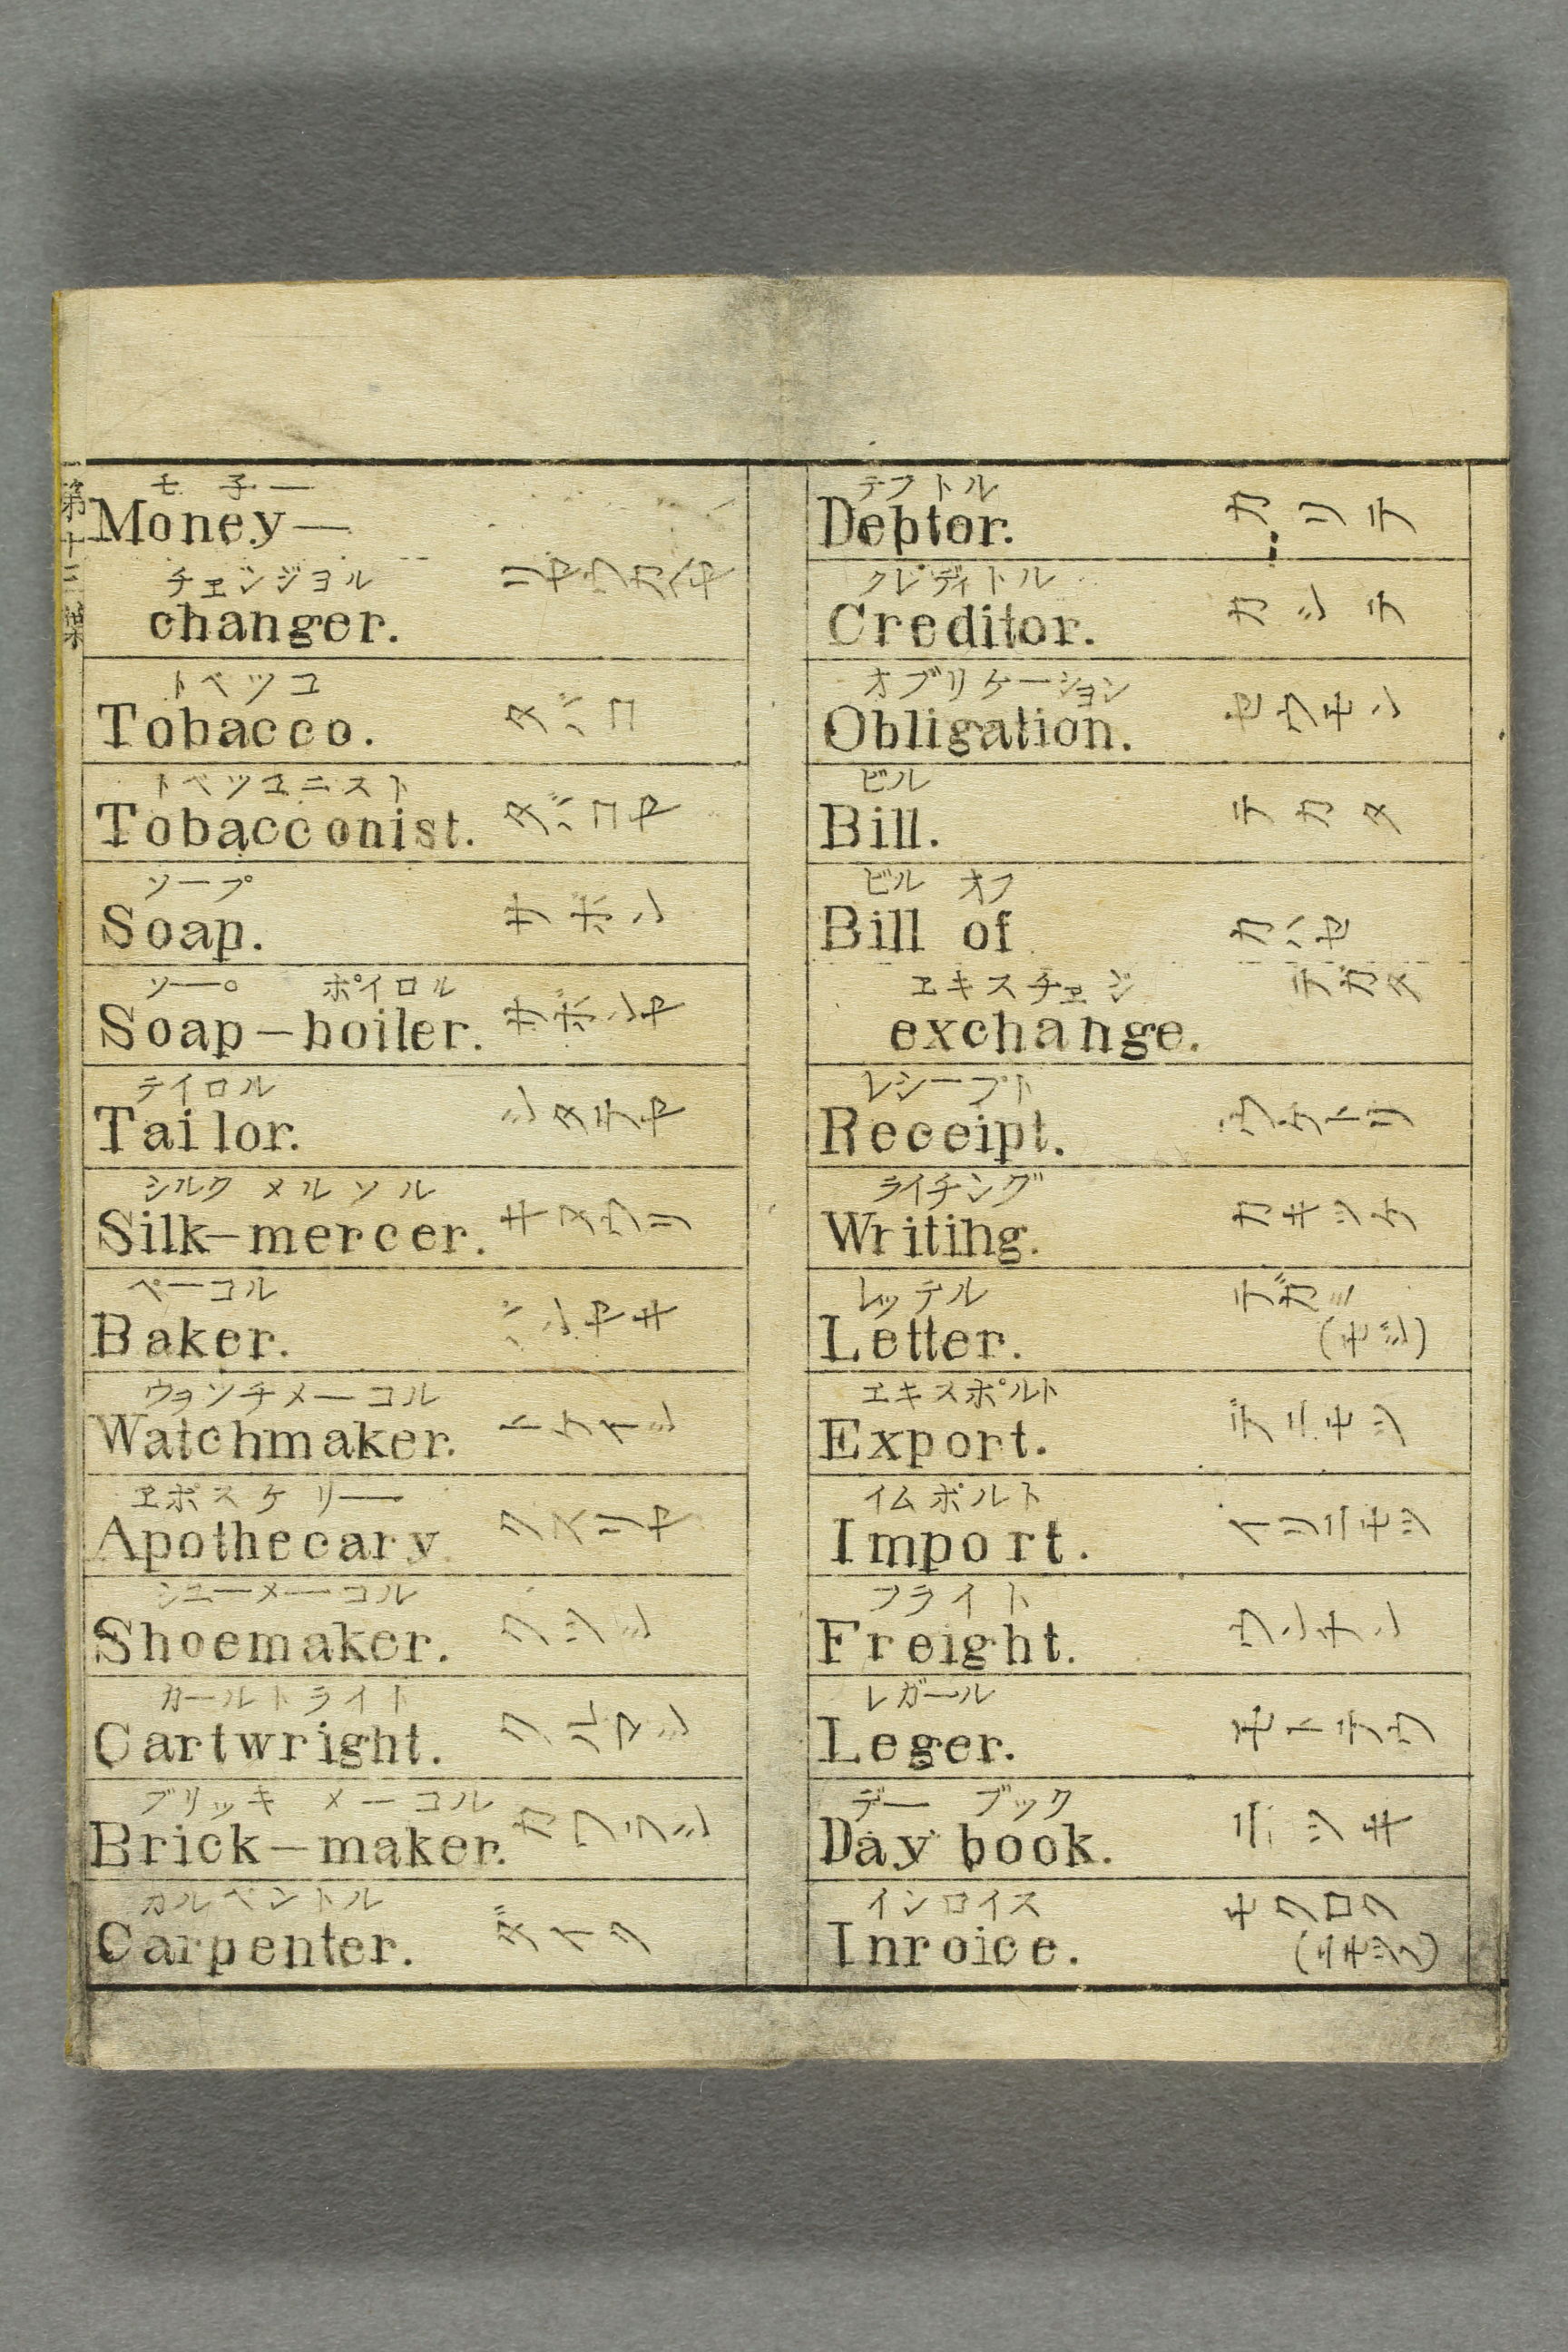 第十三
モ子ー
Money—
チヱンジヨル
changer. リヤウカヘヤ
トベツコ
Tobacco. タバコ
トベツコニスト
Tobacconist. タバコヤ
ソープ
Soap. サボン
ソー○ ボイロル
Soap-boiler. サボンヤ
テイロル
Tailor. シタテヤ
シルク メルソル
Silk-mercer. キヌウリ
ベーコル
Baker. パンヤキ
ウヲツチメーコル
Watchmaker. トケイシ
ヱポスケリー
Apothecary クスリヤ
シユーメーコル
Shoemaker. クツシ
カールトライト
Cartwright. クルマシ
ブリッキ メーコル
Brick-maker. カワラシ
カルペントル
Carpenter. ダイク
テフトル
Debtor. カリテ
クレディトル
Creditor. カシテ
オブリケーション
Obligation. セウモン
ビル
Bill. テカタ
ビル オフ
Bill of カハセ
ヱキスチェジ テガタ
exchange.
レシープト
Receipt. ウケトリ
ライチング
Writing. カキツケ
レッテル
Letter. テガミ
(モジ)
エキスポルト
Export. デニモツ
イムポルト
Import. イリニモツ
フライト
Freight. ウンチン
レガール
Leger. モトチウ
デー ブック
Day book. ニッキ
インロイス
Inroice. モクロク